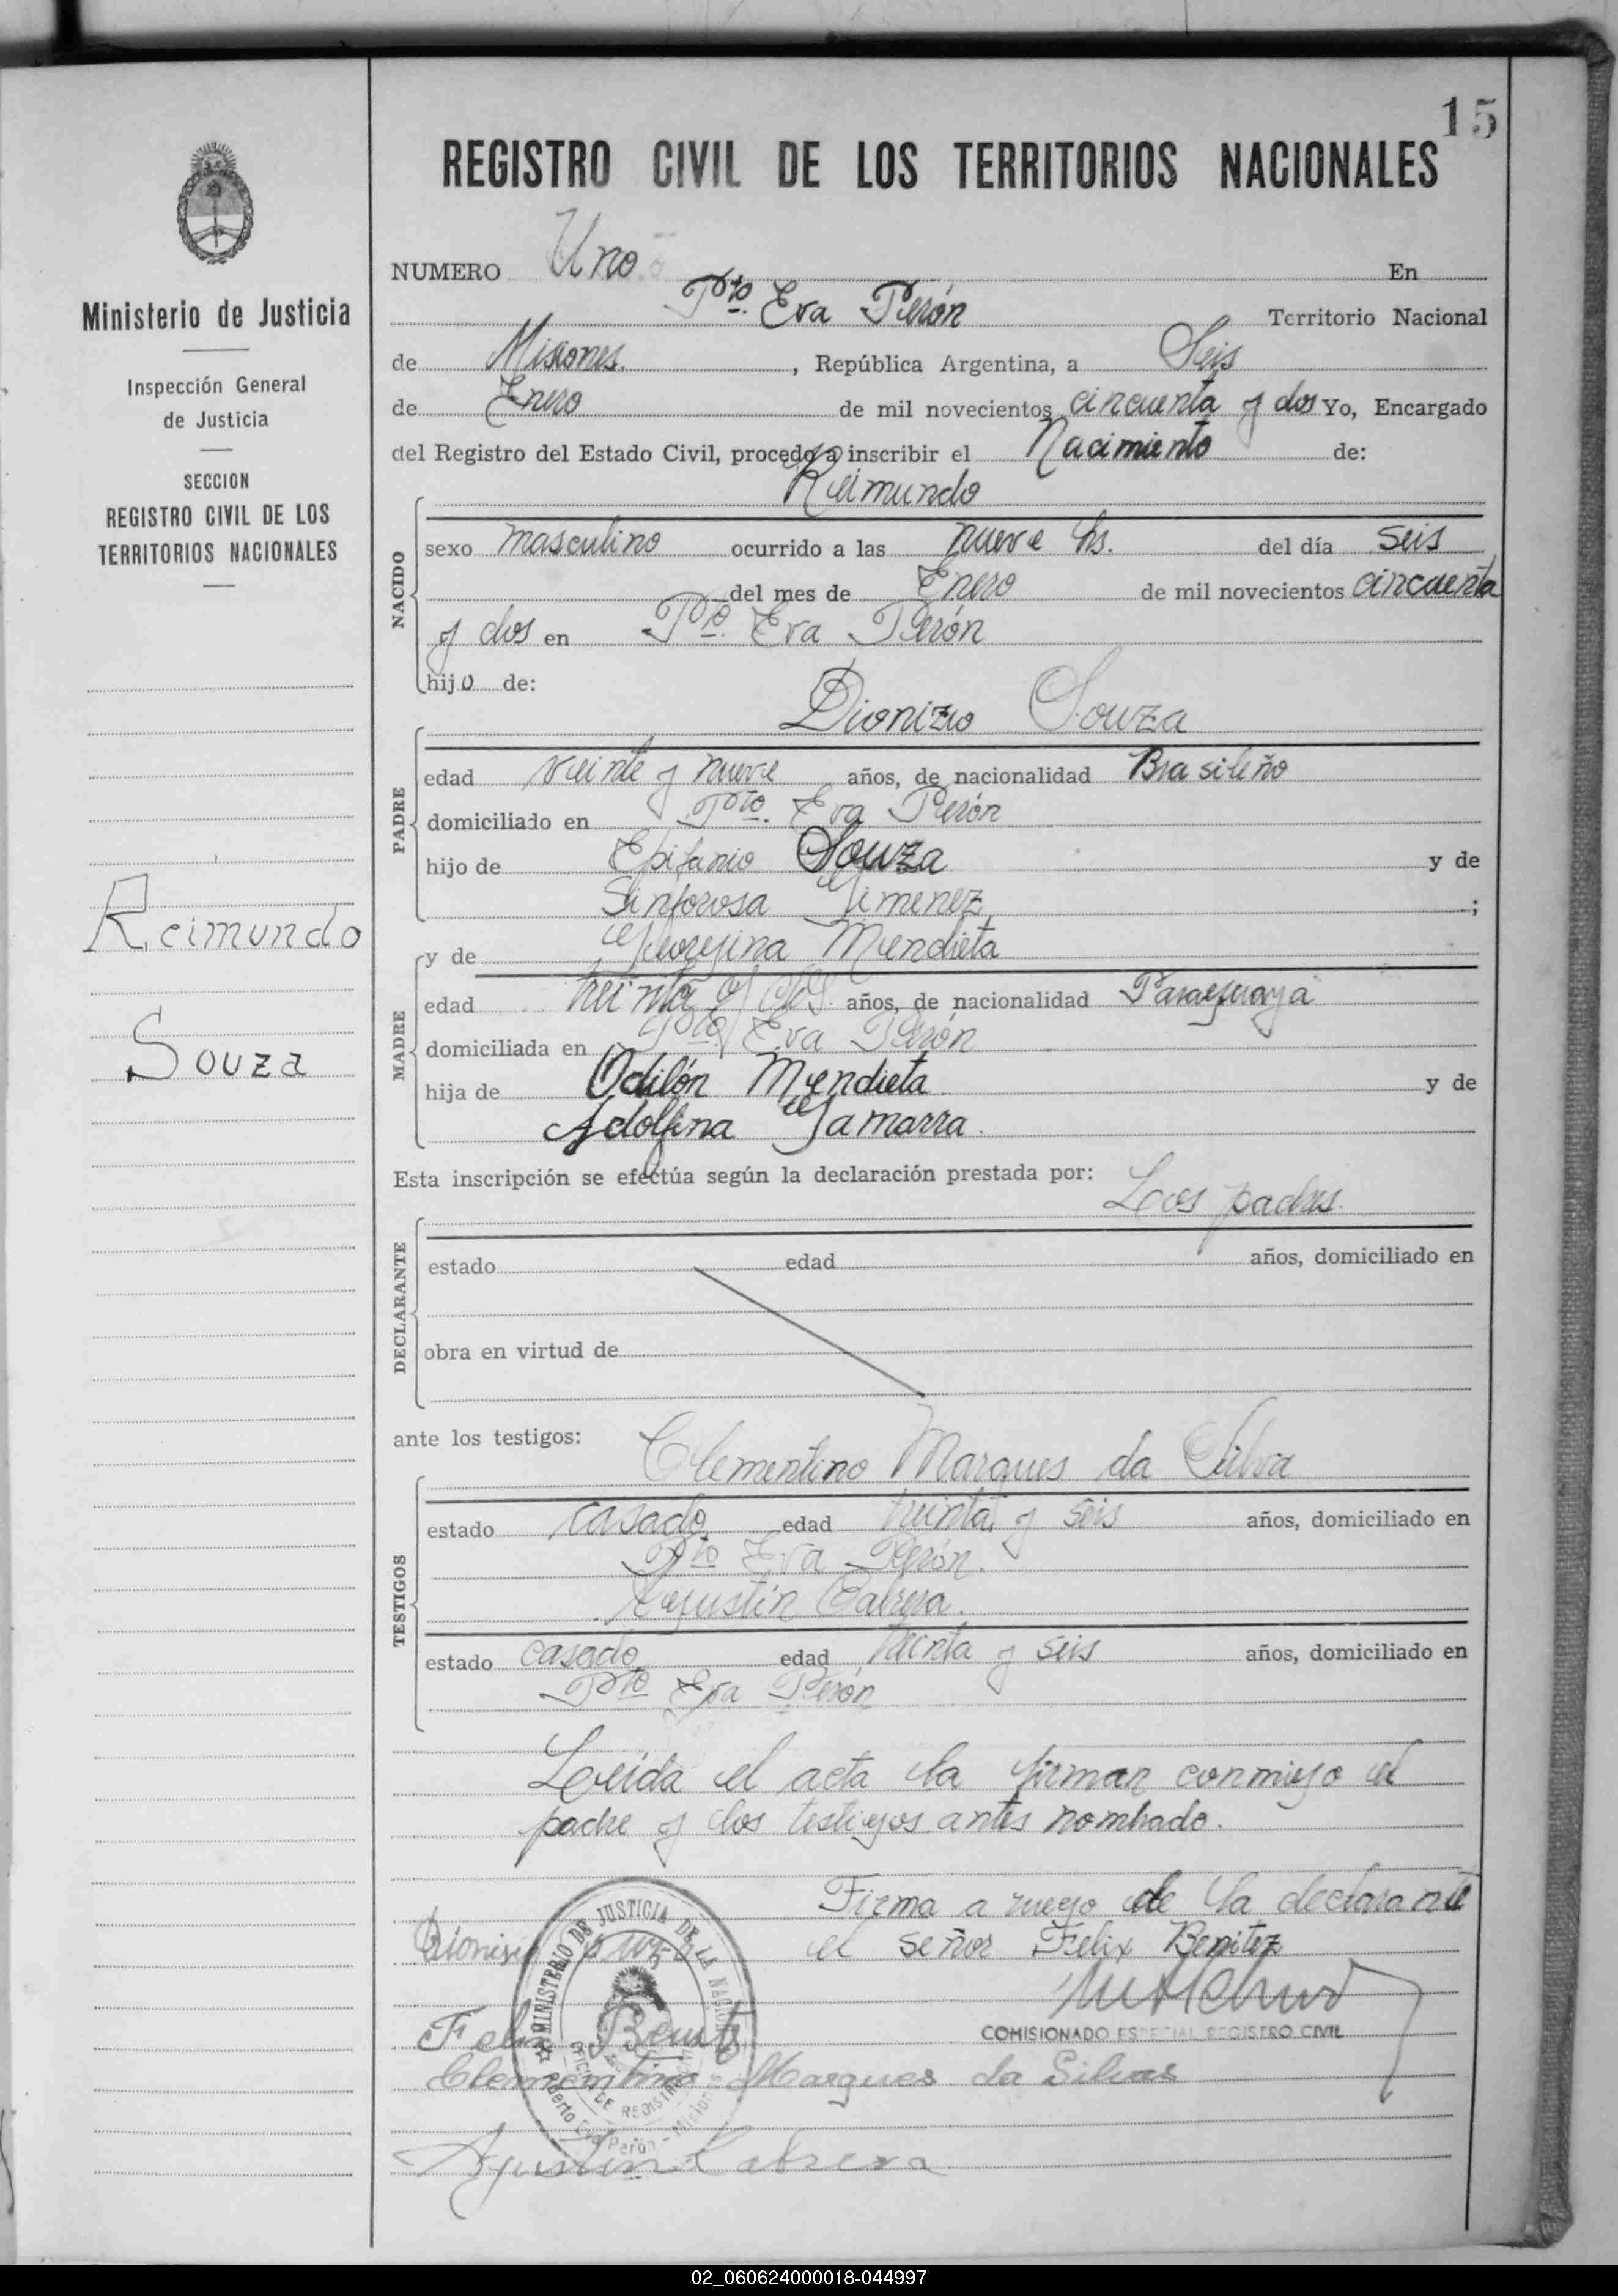 15
REGISTRO CIVIL DE LOS TERRITORIOS NACIONALES
Ministerio de Justicia
Inspección General
de Justicia
SECCION
REGISTRO CIVIL DE LOS
TERRITORIOS NACIONALES
Reimundo
Souza
NUMERO Uno En
Pto. Eva Perón Territorio Nacional
de Misiones. , República Argentina, a Seis
de Enero de mil novecientos cincuenta y dos Yo, Encargado
del Registro del Estado Civil, procedo a inscribir el Nacimiento de:
Reimundo
NACIDO
sexo masculino ocurrido a las nueve hs. del día seis
del mes de Enero de mil novecientos cincuenta
y dos en Pto. Eva Perón
hijo de:
Dionizio Souza
PADRE
edad veinte y nueve años, de nacionalidad Brasileño
domiciliado en Pto. Eva Perón
hijo de Epifanio Souza y de
Sinforosa Gimenez ;
y de Georgina Mendieta
MADRE
edad treinta y dos años, de nacionalidad Paraguaya
domiciliada en Pto. Eva Perón
hija de Odilón Mendieta y de
Adolfina Gamarra.
Esta inscripción se efectúa según la declaración prestada por:
Los padres.
DECLARANTE
estado edad años, domiciliado en
obra en virtud de
ante los testigos:
Clementino Marques da Silva
TESTIGOS
estado casado edad treinta y seis años, domiciliado en
Pto Eva Perón.
Agustín Cabrera.
estado casado edad treinta y seis años, domiciliado en
Pto Eva Perón
Leída el acta la firman conmigo el
padre y los testigos antes nombrado.
Firma a ruego de la declarante
el señor Felix Benitez
Dionisio Souza
MINISTERIO DE JUSTICIA DE LA NACION
OFICINA DE REGISTRO
Puerto Eva Perón - Misiones
COMISIONADO ESPECIAL REGISTRO CIVIL
Felix Benitez
Clementino Marques da Silva
Agustin Cabrera
02_060624000018-044997